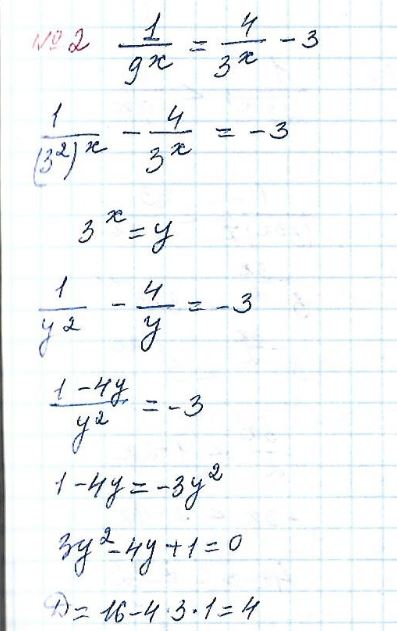 №2 1/9^x = 4/3^x - 3
1/(3^2)^x - 4/3^x = -3
3^x = y
1/y^2 - 4/y = -3
(1-4y)/y^2 = -3
1-4y = -3y^2
3y^2-4y+1=0
D = 16-4·3·1=4